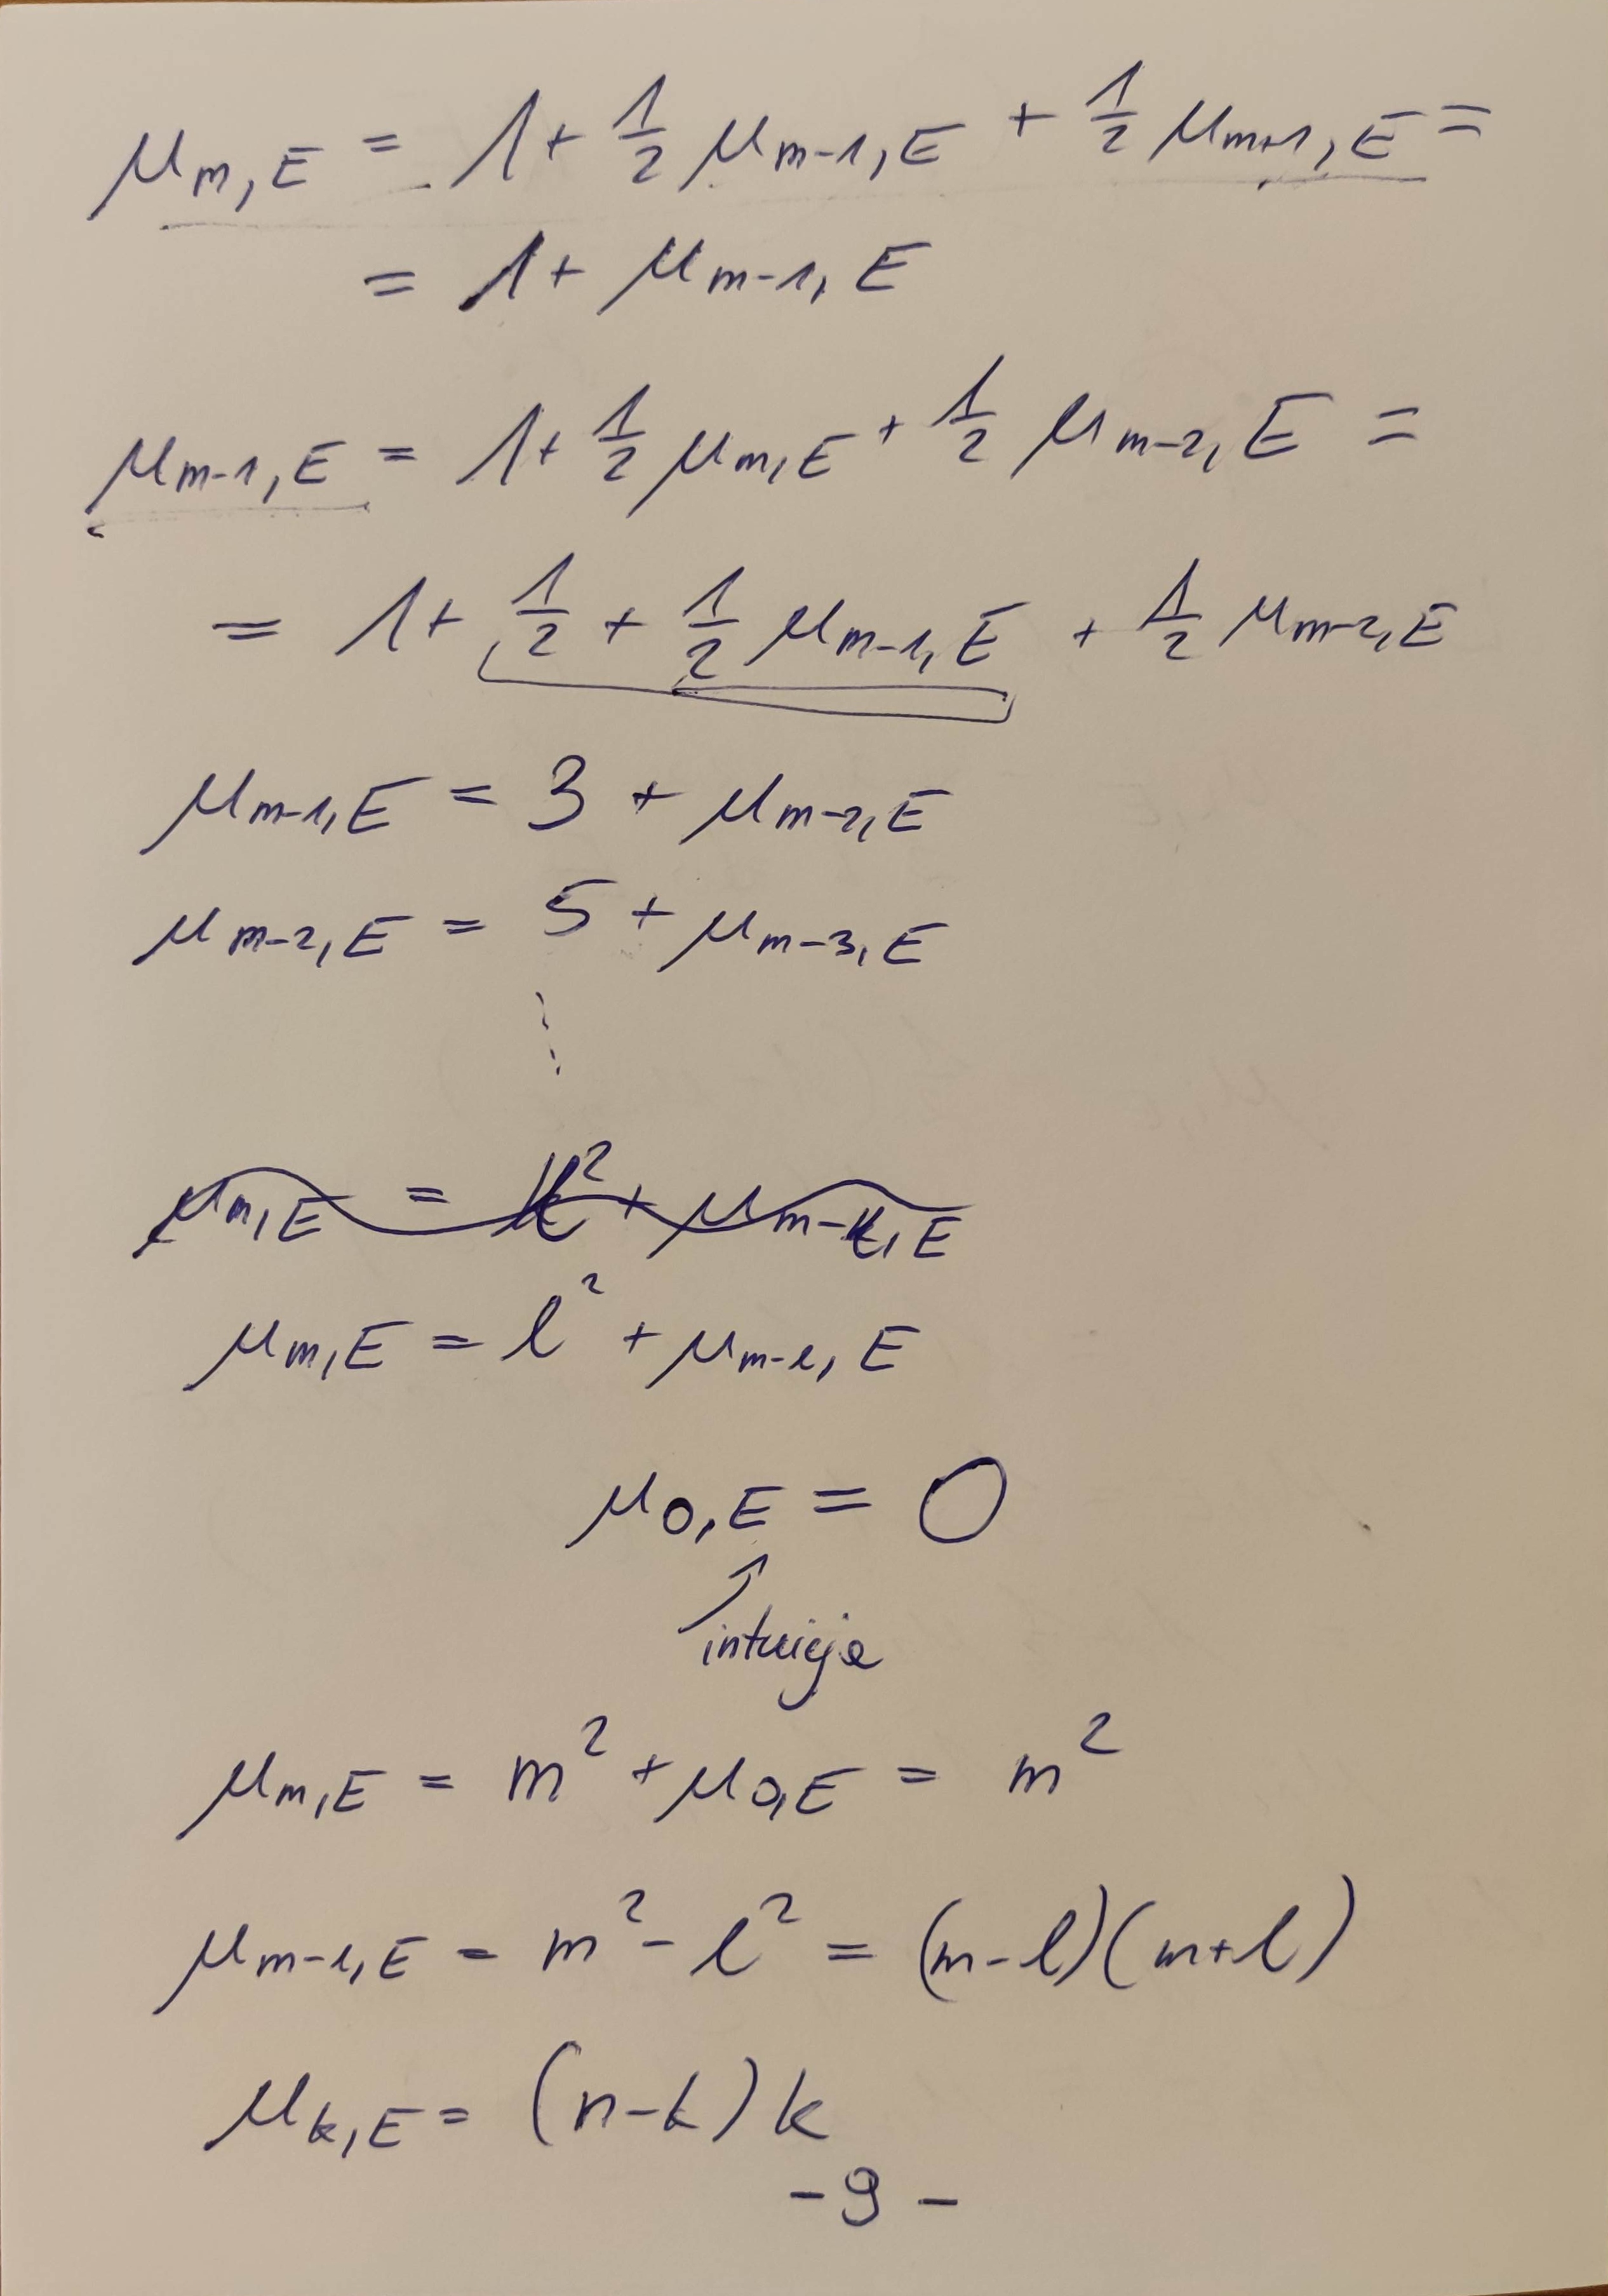 μ_{m,E} = 1 + 1/2 μ_{m-1,E} + 1/2 μ_{m+1,E} =
= 1 + μ_{m-1,E}
μ_{m-1,E} = 1 + 1/2 μ_{m,E} + 1/2 μ_{m-2,E} =
= 1 + 1/2 + 1/2 μ_{m-1,E} + 1/2 μ_{m-2,E}
μ_{m-1,E} = 3 + μ_{m-2,E}
μ_{m-2,E} = 5 + μ_{m-3,E}
⋮
μ_{m,E} = k² + μ_{m-k,E}
μ_{m,E} = l² + μ_{m-l,E}
μ_{0,E} = 0
↗
intuicja
μ_{m,E} = m² + μ_{0,E} = m²
μ_{m-l,E} = m² - l² = (m-l)(m+l)
μ_{k,E} = (n-k)k
- 9 -